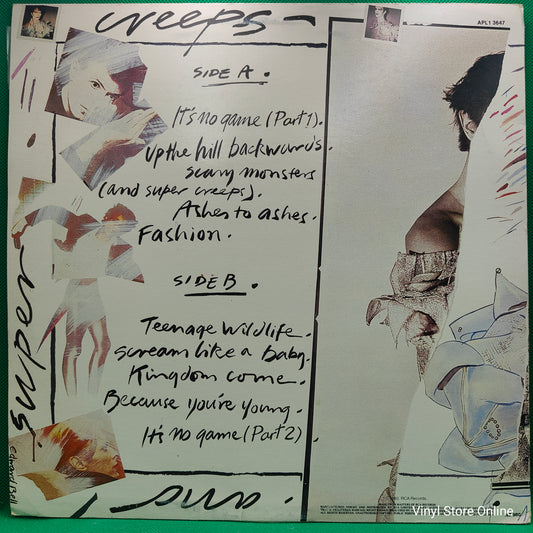 creeps
APL1 3647
SIDE A.
It's no game (Part 1).
Up the hill backwards.
Scary monsters
(and super creeps).
Ashes to ashes.
Fashion.
SIDE B.
Teenage wildlife.
Scream like a baby.
Kingdom come.
Because you're young.
It's no game (Part 2).
super
and
RCA Records
Vinyl Store Online